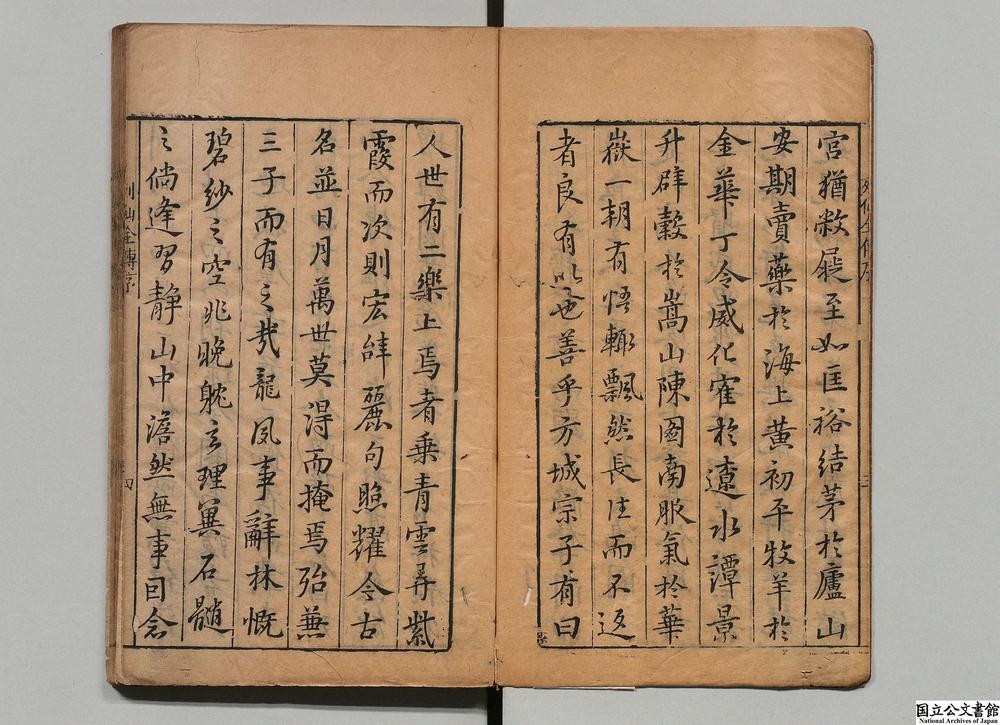 宮猶敝屣至如匡裕結茅於廬山
安期賣藥於海上黄初平牧羊於
金華丁令威化寉於遼水譚景
升辟穀於嵩山陳圖南服氣於華
嶽一朝有悟輙飄然長往而不返
者良有以也善乎方城宗子有曰
人世有二樂上焉者乗青雲尋紫
霞而次則宏辭麗句照耀今古
名並日月萬世莫得而掩焉殆兼
三子而有之哉龍鳳事辭林慨
碧紗之空兆晚躭玄理冀石髓
之倘逢習静山中澹然無事因念
列仙全傳序
四
列仙全傳序
三
国立公文書館
National Archives of Japan